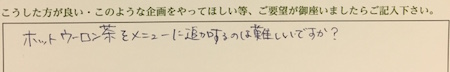 こうした方が良い・このような企画をやってほしい等、ご要望が御座いましたらご記入下さい。
ホットウーロン茶をメニューに追加するのは難しいですか？